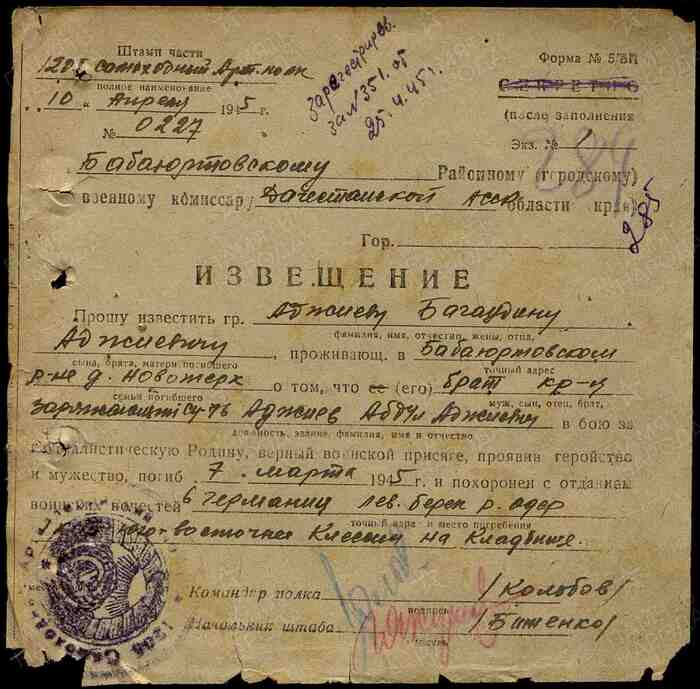 Штамп части
Форма № 5/БП
самоходный Арт. полк
полное наименование
СЕКРЕТНО
10 „ Апреля 1945 г.
(после заполнения
№ 0227
Экз. № 1
зарегестриров.
за № 351. от
25.4.45 г.
284
285
Бабаюртовскому Районному (городскому)
военному комиссару Дагестанской АССР области края)
Гор.
ИЗВЕЩЕНИЕ
Прошу известить гр. Аджиеву Багаудину
фамилия, имя, отчество, жены, отца,
Аджиевичу, проживающ. в Бабаюртовском
сына, брата, матери погибшего
точный адрес
р-не д. Новотерк о том, что ее (его) брат кр-ц
семьи погибшего
муж, сын, отец, брат,
заряжающий Су-76 Аджиев Абдул Аджиевич в бою за
должность, звание, фамилия, имя и отчество
социалистическую Родину, верный воинской присяге, проявив геройство
и мужество, погиб 7 марта 1945 г. и похоронен с отданием
воинских почестей в Германии лев. берег р. Одер
точный адрес и место погребения
восточнее на Кладбище.
Командир полка /Колыбов/
подпись
Начальник штаба /Биженко/